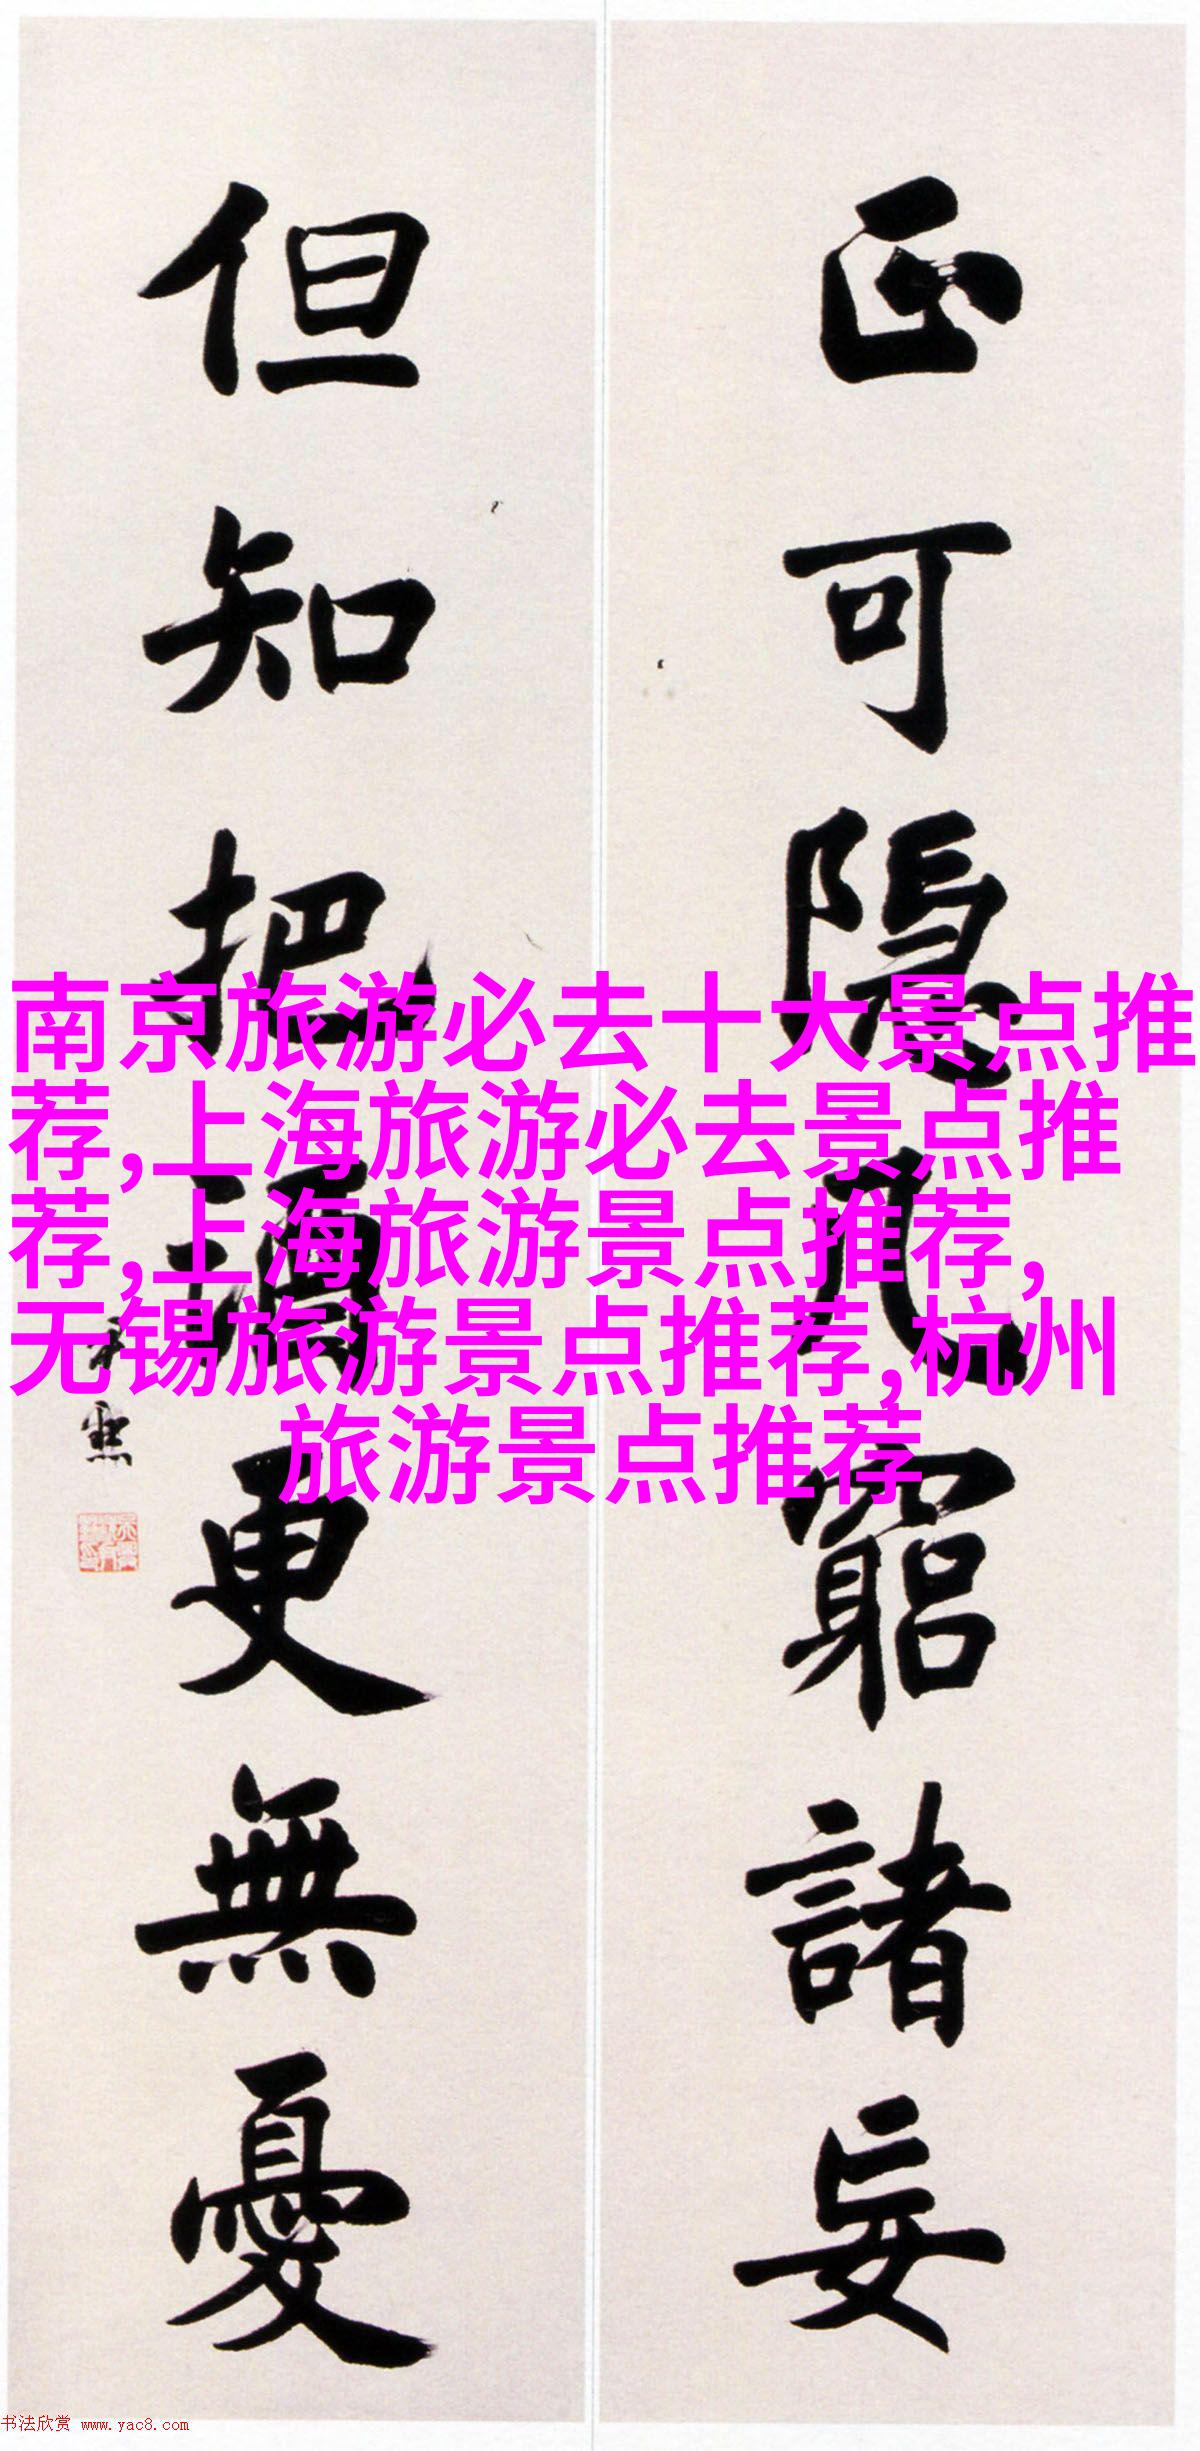 正可隱几窮諸妄
但知把酒更無憂
南京旅游必去十大景点推
荐,上海旅游必去景点推
荐,上海旅游景点推荐,
无锡旅游景点推荐,杭州
旅游景点推荐
书法欣赏 www.yac8.com